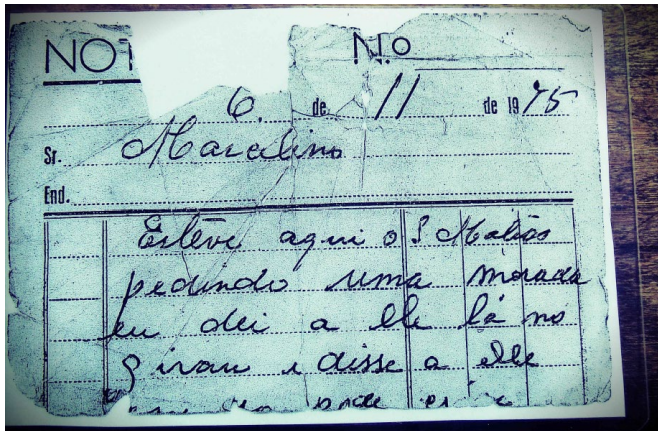 NOT N.o
6. de 11 de 1975
Sr. Marcelino
End.
Esteve aqui o S Matias
pedindo uma morada
eu dei a elle lá no
girau e disse a elle
pode